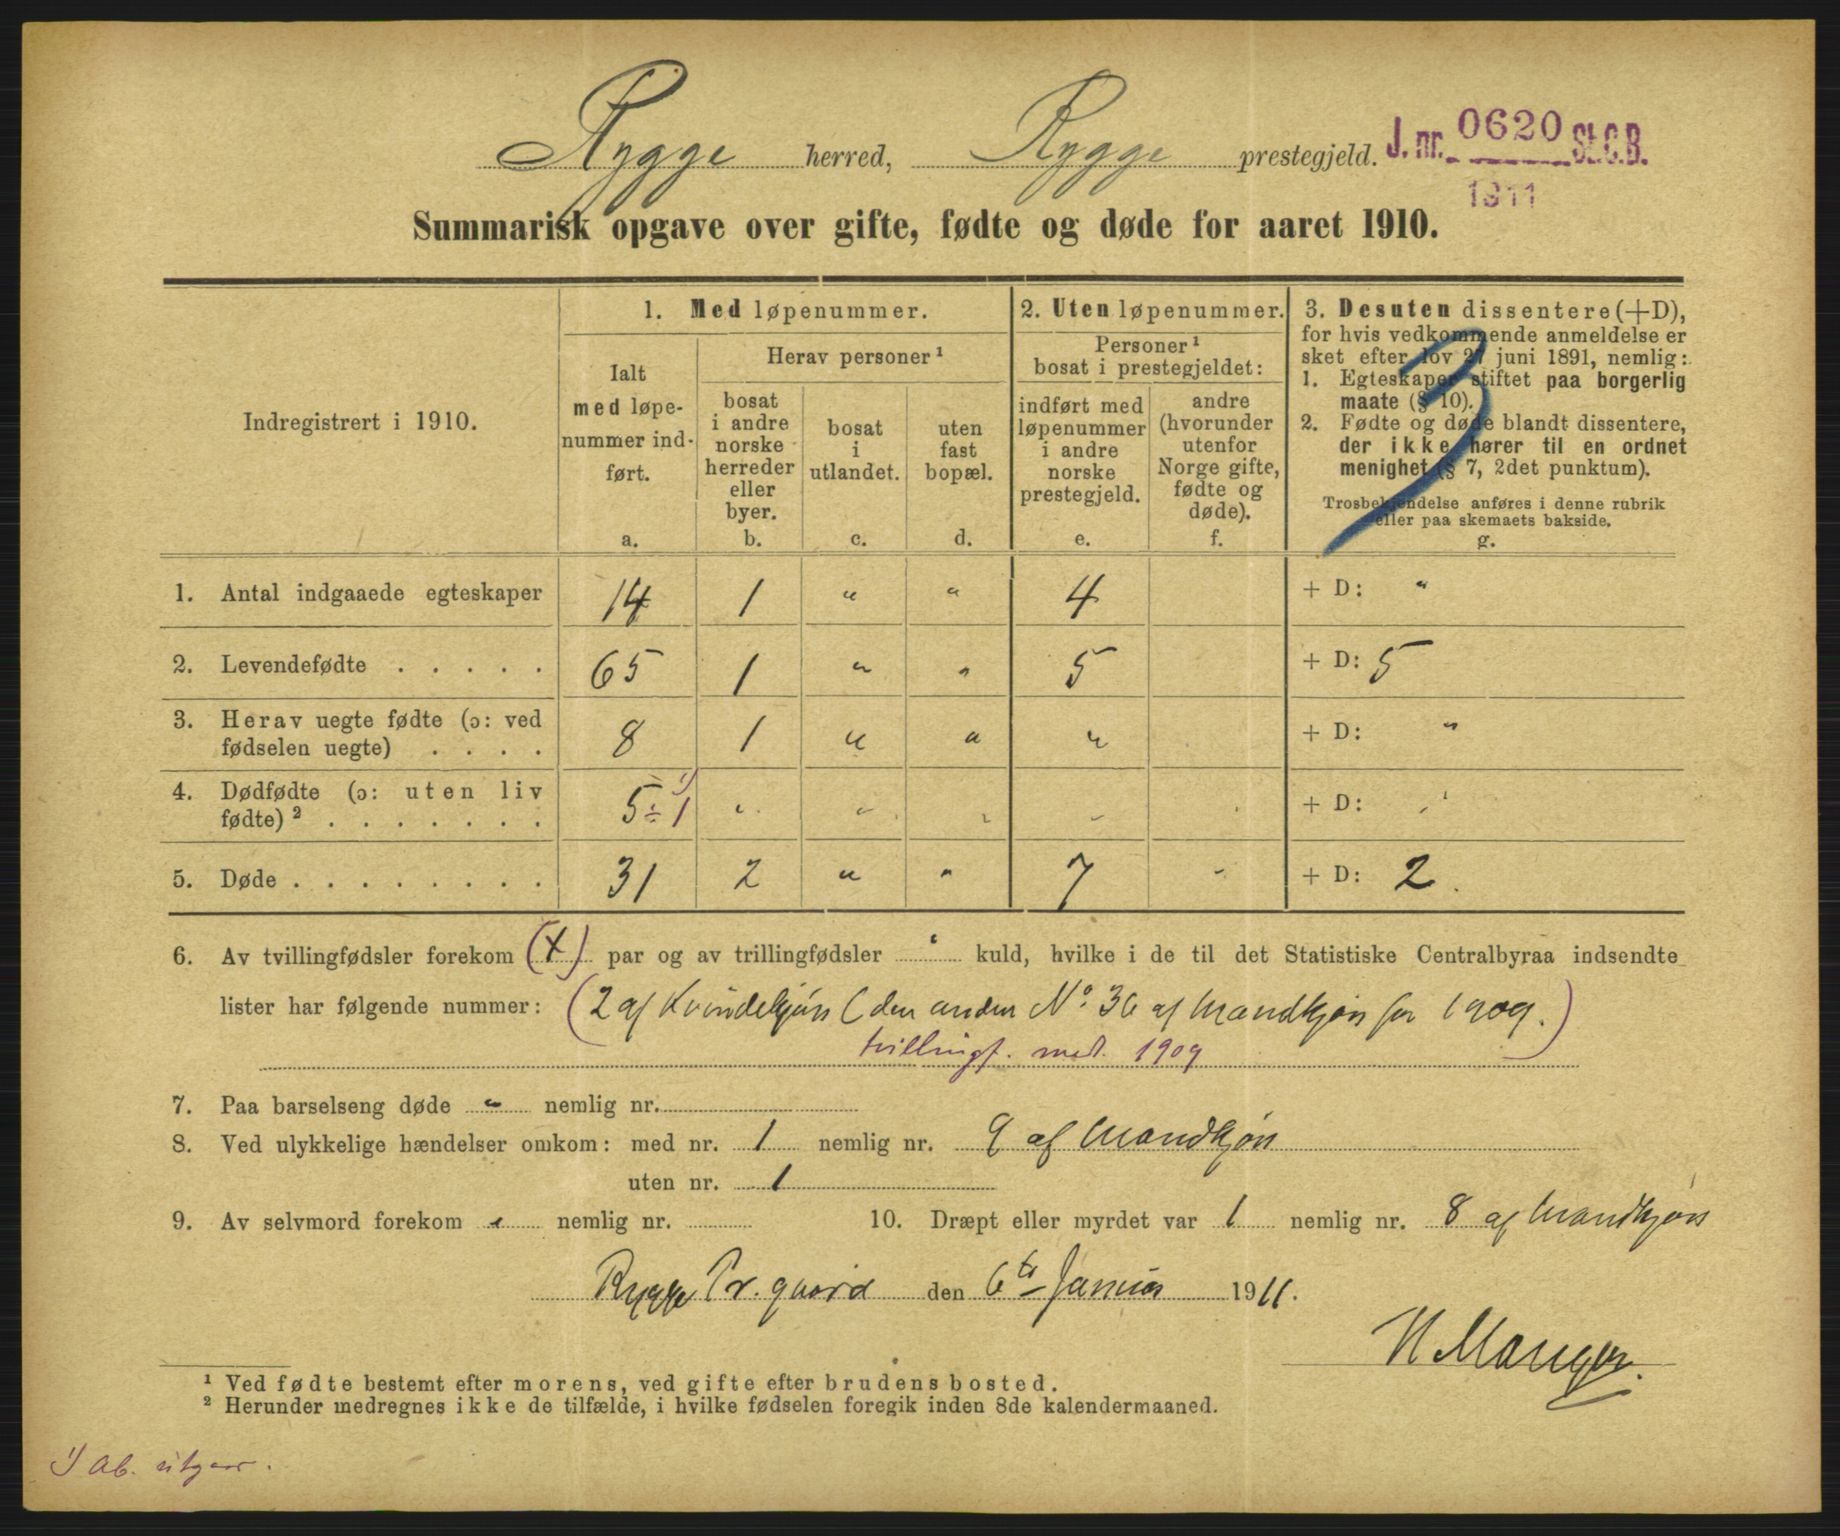 Rygge herred, Rygge prestegjeld. J. nr. 0620 St.C.B.
1911
Summarisk opgave over gifte, fødte og døde for aaret 1910.
Indregistrert i 1910.
1. Med løpenummer.
Ialt
med løpe-
nummer ind-
ført.
a.
Herav personer ¹
bosat
i andre
norske
herreder
eller
byer.
b.
bosat
i
utlandet.
c.
uten
fast
bopæl.
d.
2. Uten løpenummer.
Personer ¹
bosat i prestegjeldet:
indført med
løpenummer
i andre
norske
prestegjeld.
e.
andre
(hvorunder
utenfor
Norge gifte,
fødte og
døde).
f.
3. Desuten dissentere (+D),
for hvis vedkommende anmeldelse er
sket efter lov 27 juni 1891, nemlig:
1. Egteskaper stiftet paa borgerlig
maate (§ 10).
2. Fødte og døde blandt dissentere,
der ikke hører til en ordnet
menighet (§ 7, 2det punktum).
Trosbekjendelse anføres i denne rubrik
eller paa skemaets bakside.
g.
3
1. Antal indgaaede egteskaper 14 1 " " 4 + D: "
2. Levendefødte . . . . . 65 1 " " 5 + D: 5
3. Herav uegte fødte (ɔ: ved
fødselen uegte) . . . . 8 1 " " " + D: "
4. Dødfødte (ɔ: uten liv
fødte) ² . . . . . . . 5 ÷ 1 ¹) " " " " " + D: "
5. Døde . . . . . . . . 31 2 " " 7 " + D: 2.
6. Av tvillingfødsler forekom (1) par og av trillingfødsler " kuld, hvilke i de til det Statistiske Centralbyraa indsendte
lister har følgende nummer: (2 af Kvindekjøn (den anden No. 36 af Mandkjøn for 1909.)
tvillingf. med. 1909
7. Paa barselseng døde " nemlig nr.
8. Ved ulykkelige hændelser omkom: med nr. 1 nemlig nr. 9 af Mandkjøn
uten nr. 1
9. Av selvmord forekom " nemlig nr. 10. Dræpt eller myrdet var 1 nemlig nr. 8 af Mandkjøn
Rygge Pr.gaard den 6te Januar 1911.
¹ Ved fødte bestemt efter morens, ved gifte efter brudens bosted.
² Herunder medregnes ikke de tilfælde, i hvilke fødselen foregik inden 8de kalendermaaned.
¹) Ab. utgaar.